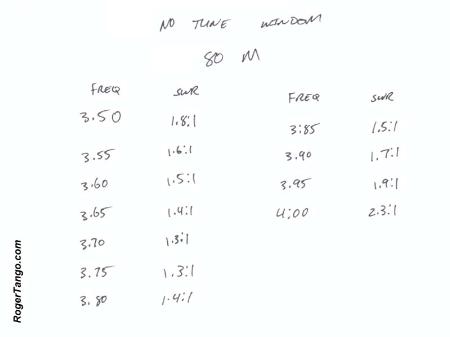 NO TUNE WINDOM
80 M
FREQ SWR
3.50 1.8:1
3.55 1.6:1
3.60 1.5:1
3.65 1.4:1
3.70 1.3:1
3.75 1.3:1
3.80 1.4:1
FREQ SWR
3:85 1.5:1
3.90 1.7:1
3.95 1.9:1
4:00 2.3:1
RogerTango.com